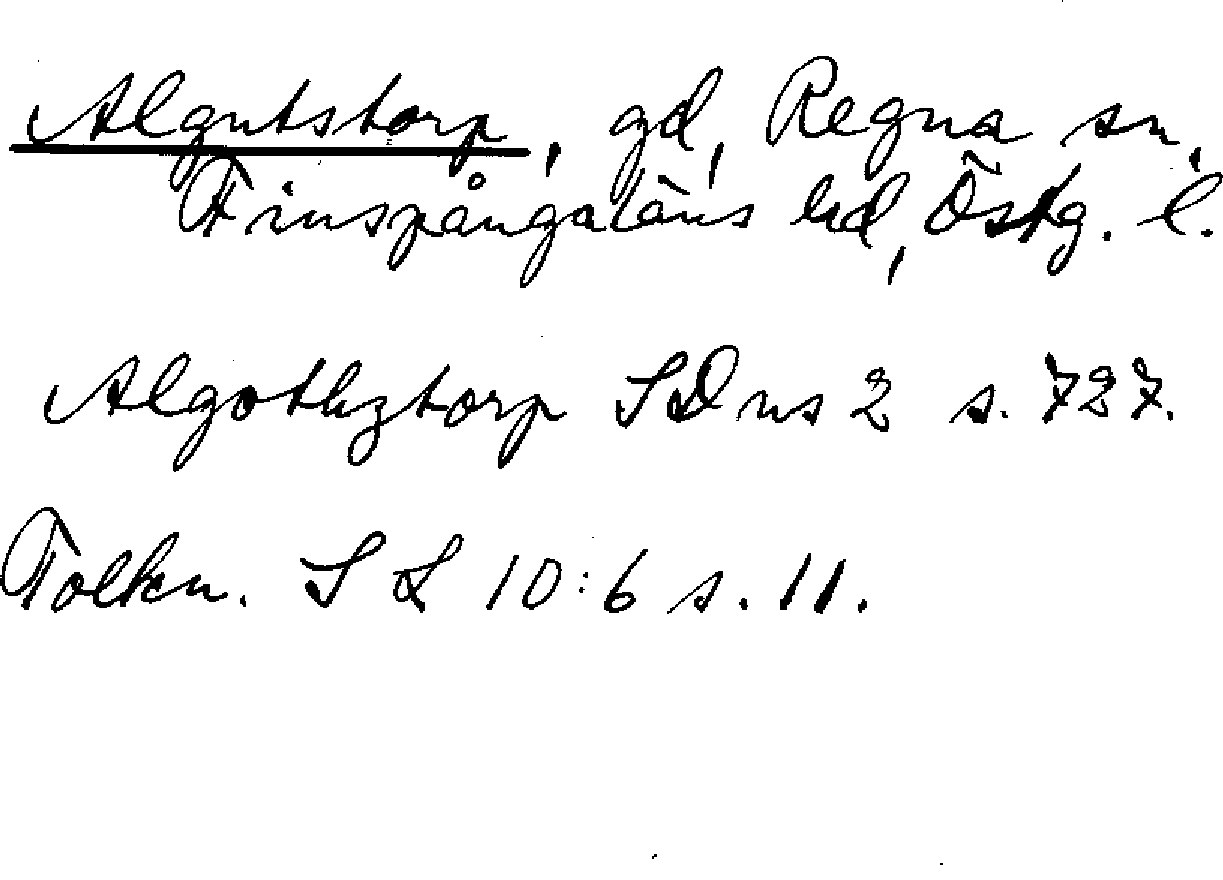 Algutstorp, gd, Regna sn,
Finspångaläns hd, Östg. l.
Algothztorp SD ns 2 s. 727.
Tolkn. SL 10:6 s. 11.